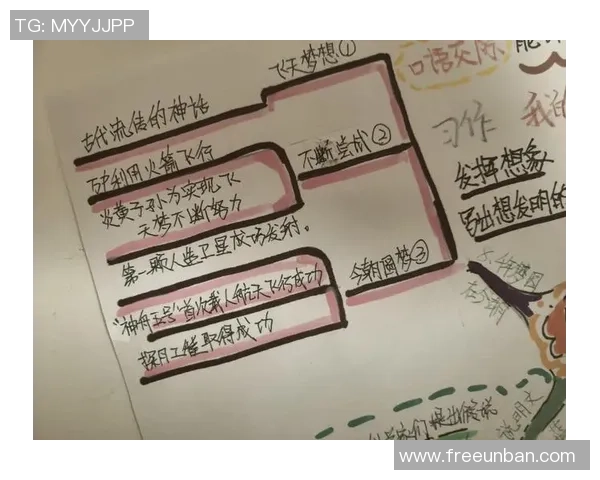 TG: MYYJJPP
飞天梦想①
古代流传的神话
万户利用火箭飞行
不断尝试②
炎黄子孙为实现飞
天梦不断努力
第一颗人造卫星成功发射。
今朝圆梦③
"神舟五号"首次载人航天飞行成功
探月工程取得成功
口语交际
习作
我的
发挥想象
写出想发明的
千年梦圆
在今朝
提出假说
说明文
www.freeunban.com